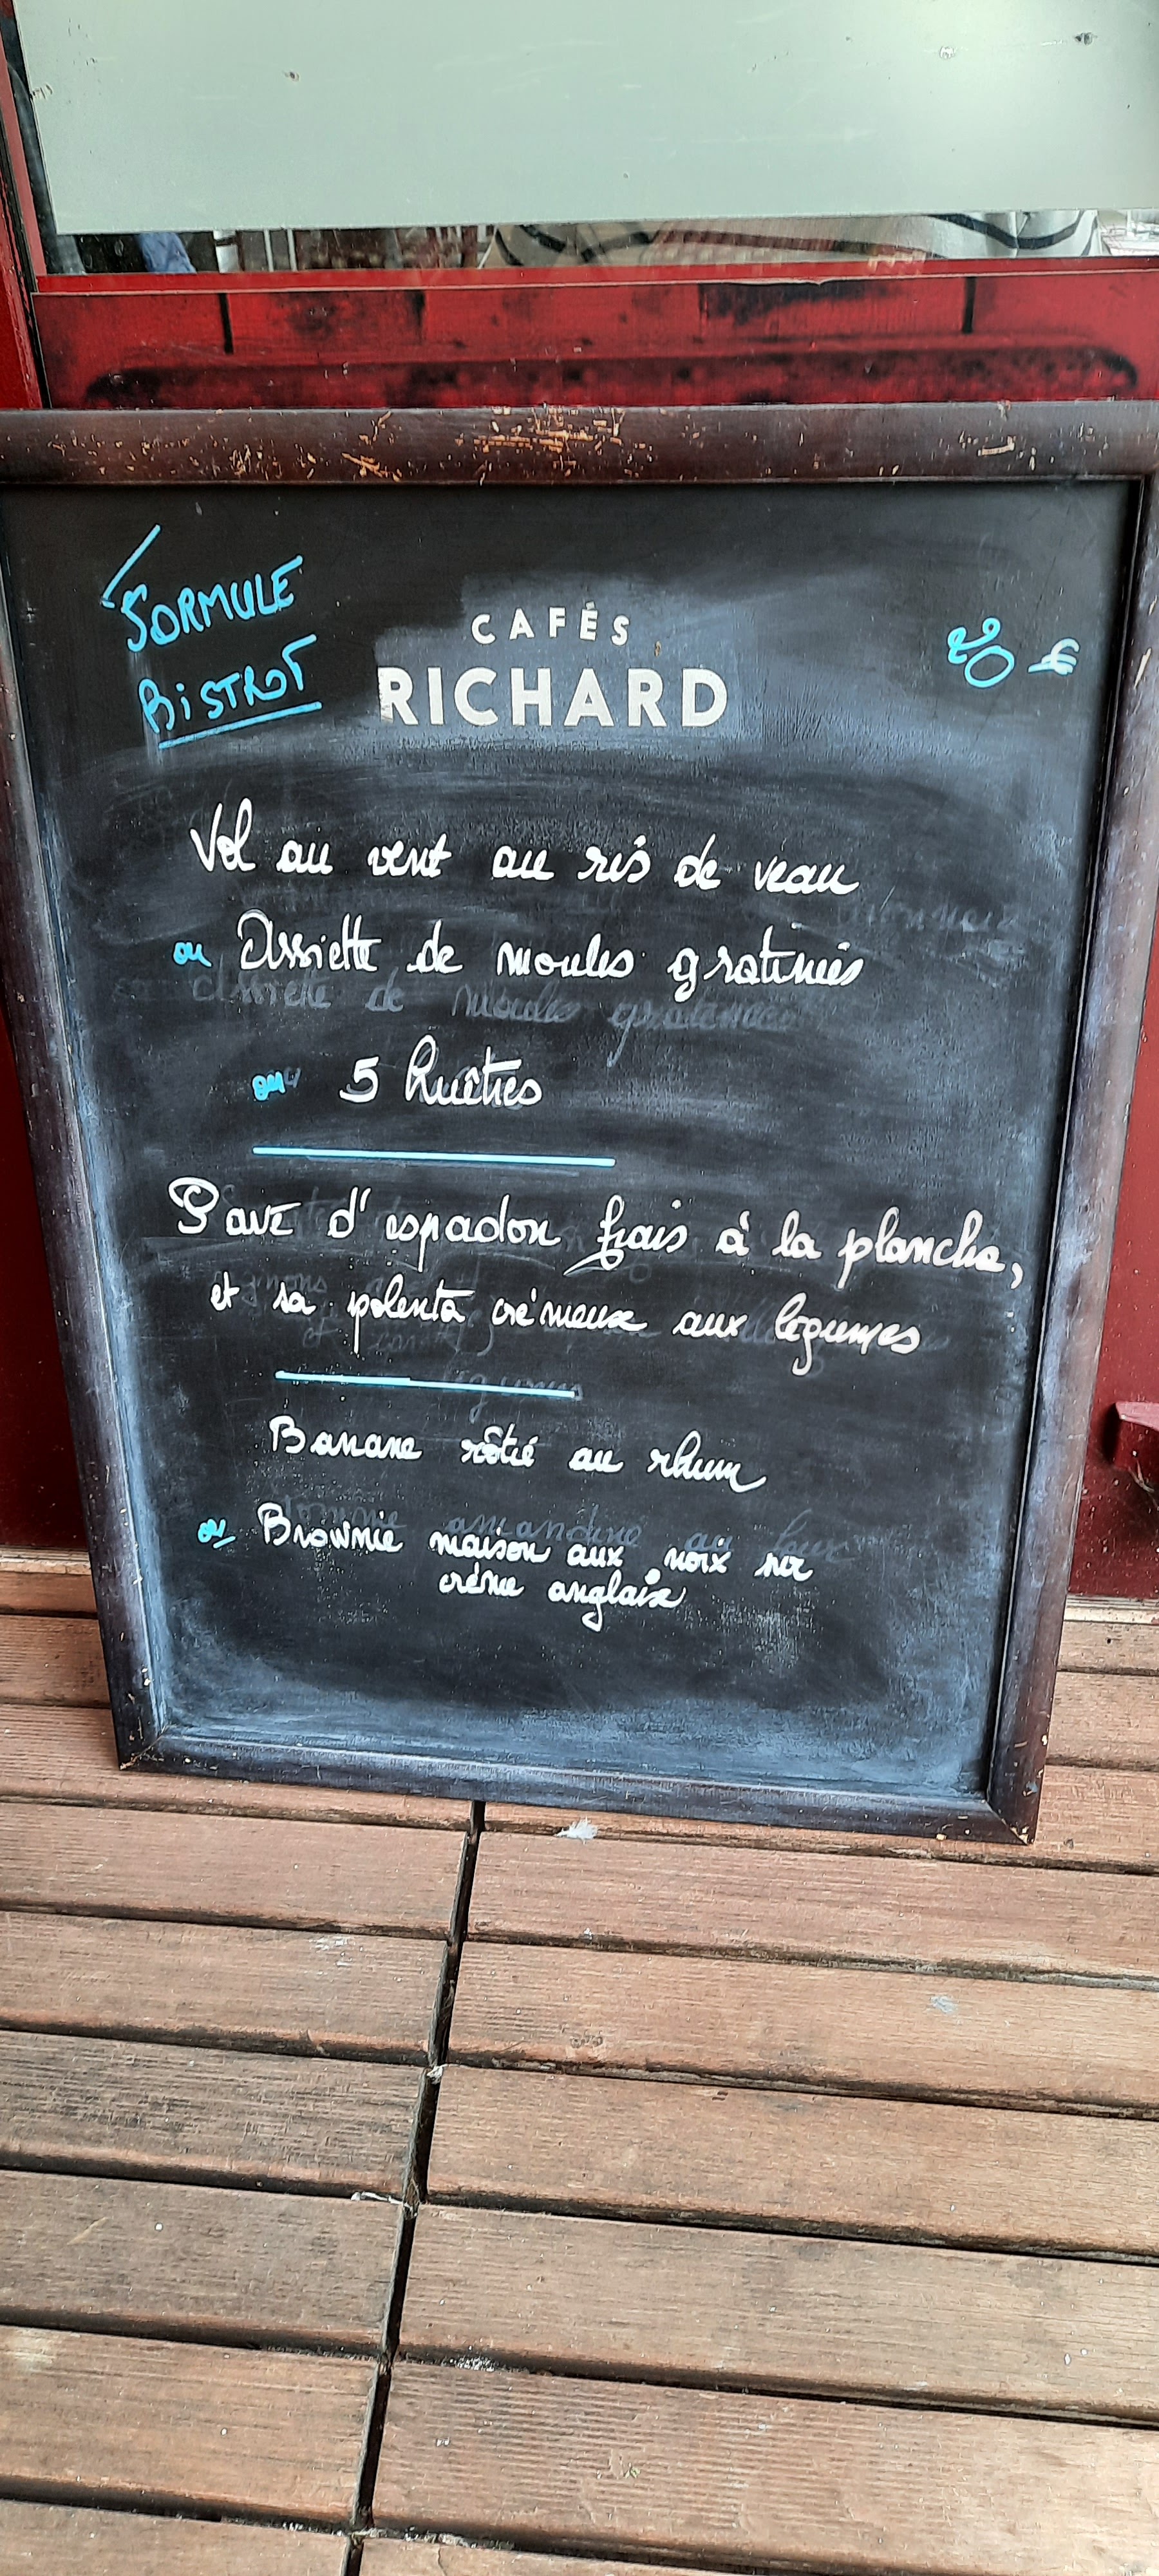 FORMULE
BISTROT
CAFÉS
RICHARD
20 €
Vol au vent au ris de veau
ou Assiette de moules gratinées
ou 5 Huêtres
Pavé d'espadon frais à la plancha,
et sa polenta crémeuse aux légumes
Banane rôtie au rhum
ou Brownie maison aux noix sur
crème anglaise